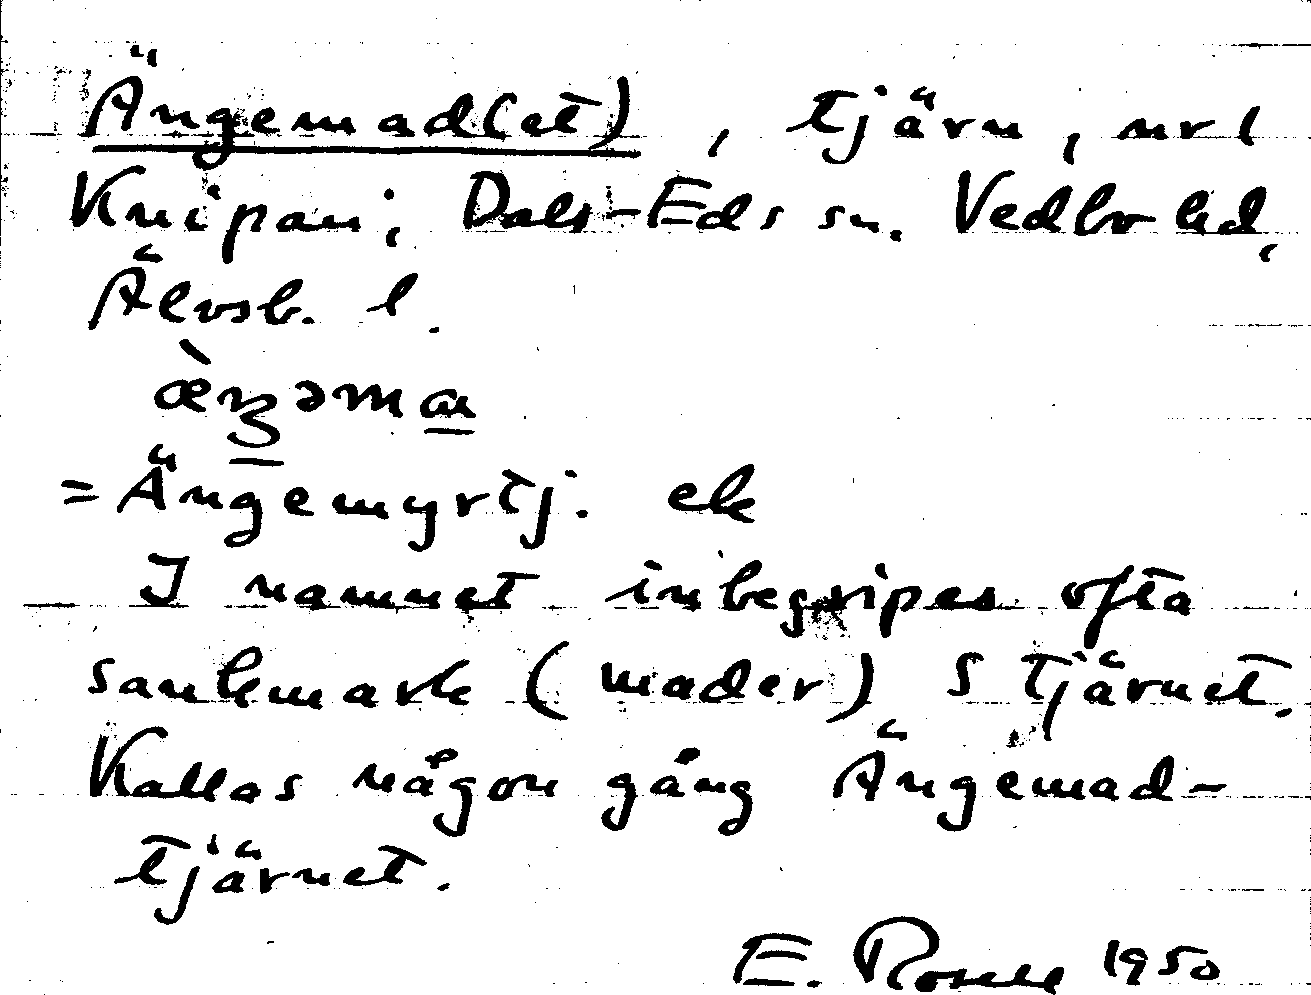 Ängemad(et), tjärn, nr 1
Knipan; Dals-Eds sn. Vedbo hd,
Älvsb. l.
= Ängemyrtj. ek
I namnet inbegripes ofta
sankmark (mader) S tjärnet.
Kallas någon gång Ängemad-
tjärnet.
E. Rosell 1950